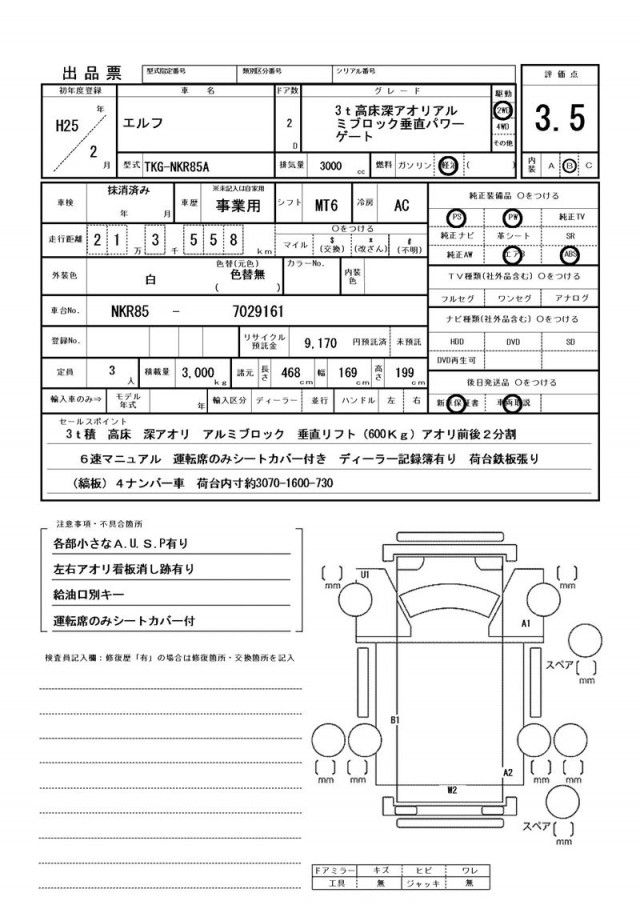 出品票
型式指定番号 類別区分番号 シリアル番号
評価点
3.5
初年度登録 車名 ドア数 グレード 駆動
H25年 2月
エルフ
2D
3t高床深アオリアル
ミブロック垂直パワー
ゲート
2WD
4WD
その他
型式 TKG-NKR85A 排気量 3000cc 燃料 ガソリン 軽油 ( ) 内装 A B C
車検 抹消済み 年 月 車歴 ※未記入は自家用 事業用 シフト MT6 冷房 AC
純正装備品 ○をつける
PS PW 純正TV
純正ナビ 革シート SR
純正AW エアB ABS
走行距離 21万3千558km ○をつける
マイル $(交換) *(改ざん) #(不明)
外装色 白 色替(元色) ( 色替無 ) カラーNo. 内装色
TV種類(社外品含む) ○をつける
フルセグ ワンセグ アナログ
車台No. NKR85 - 7029161
ナビ種類(社外品含む) ○をつける
HDD DVD SD
DVD再生可
登録No. リサイクル預託金 9,170 円預託済 未預託
定員 3人 積載量 3,000kg 諸元 長さ 468cm 幅 169cm 高さ 199cm
後日発送品 ○をつける
新車保証書 車両取説
輸入車のみ⇒ モデル年式 年 輸入区分 ディーラー 並行 ハンドル 左 右
セールスポイント
3t積 高床 深アオリ アルミブロック 垂直リフト(600Kg)アオリ前後2分割
6速マニュアル 運転席のみシートカバー付き ディーラー記録簿有り 荷台鉄板張り
(縞板)4ナンバー車 荷台内寸約3070-1600-730
注意事項・不具合箇所
各部小さなA.U.S.P有り
左右アオリ看板消し跡有り
給油口別キー
運転席のみシートカバー付
検査員記入欄:修復歴「有」の場合は修復箇所・交換箇所を記入
U1
[ ]mm
[ ]mm
A1
スペア[ ]mm
B1
[ ]mm [ ]mm
[ ]mm [ ]mm
A2
W2
スペア[ ]mm
ドアミラー キズ ヒビ ワレ
工具 無 ジャッキ 無